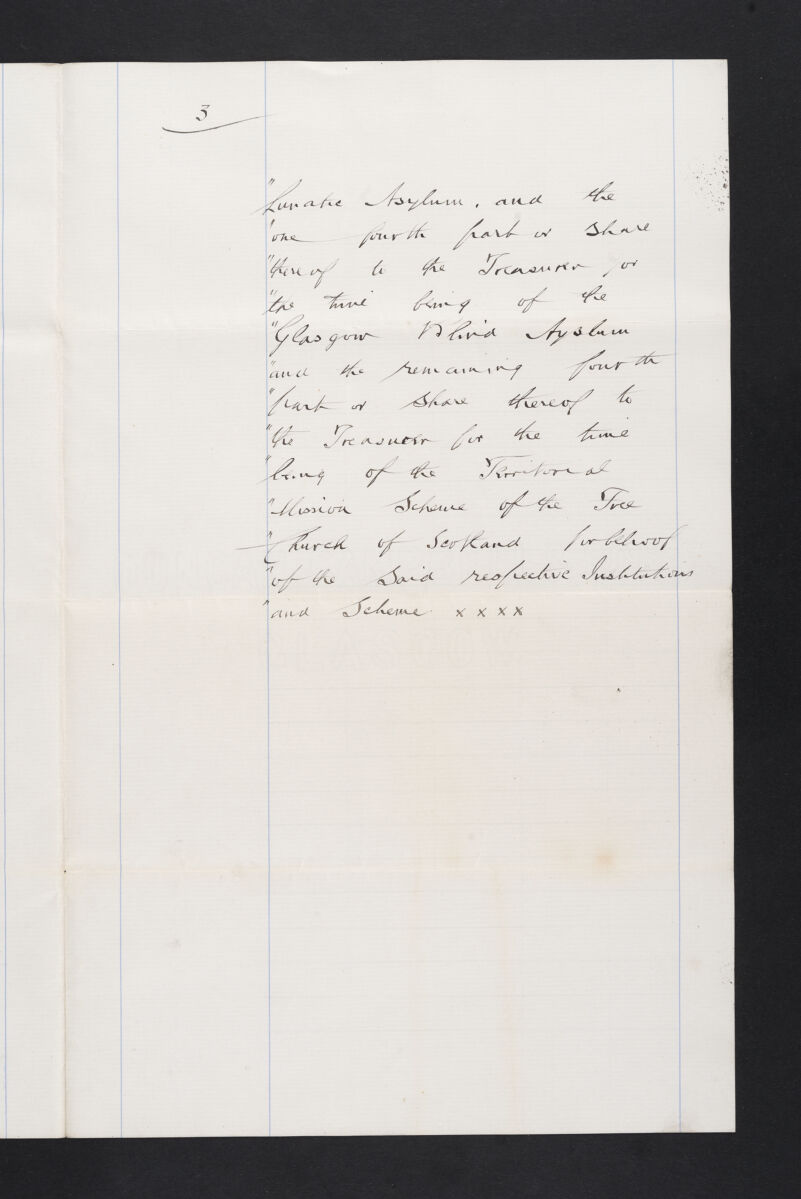 3
"Lunatic Asylum. and the
"one fourth part or share
"thereof to the Treasurer for
"the time being of the
"Glasgow Blind Ayslum
"and the remaining fourth
"part or share thereof to
"the Treasurer for the time
"being of the Territorial
"Mission Scheme of the Free
"Church of Scotland for behoof
"of the said respective Institutions
"and Scheme x x x x